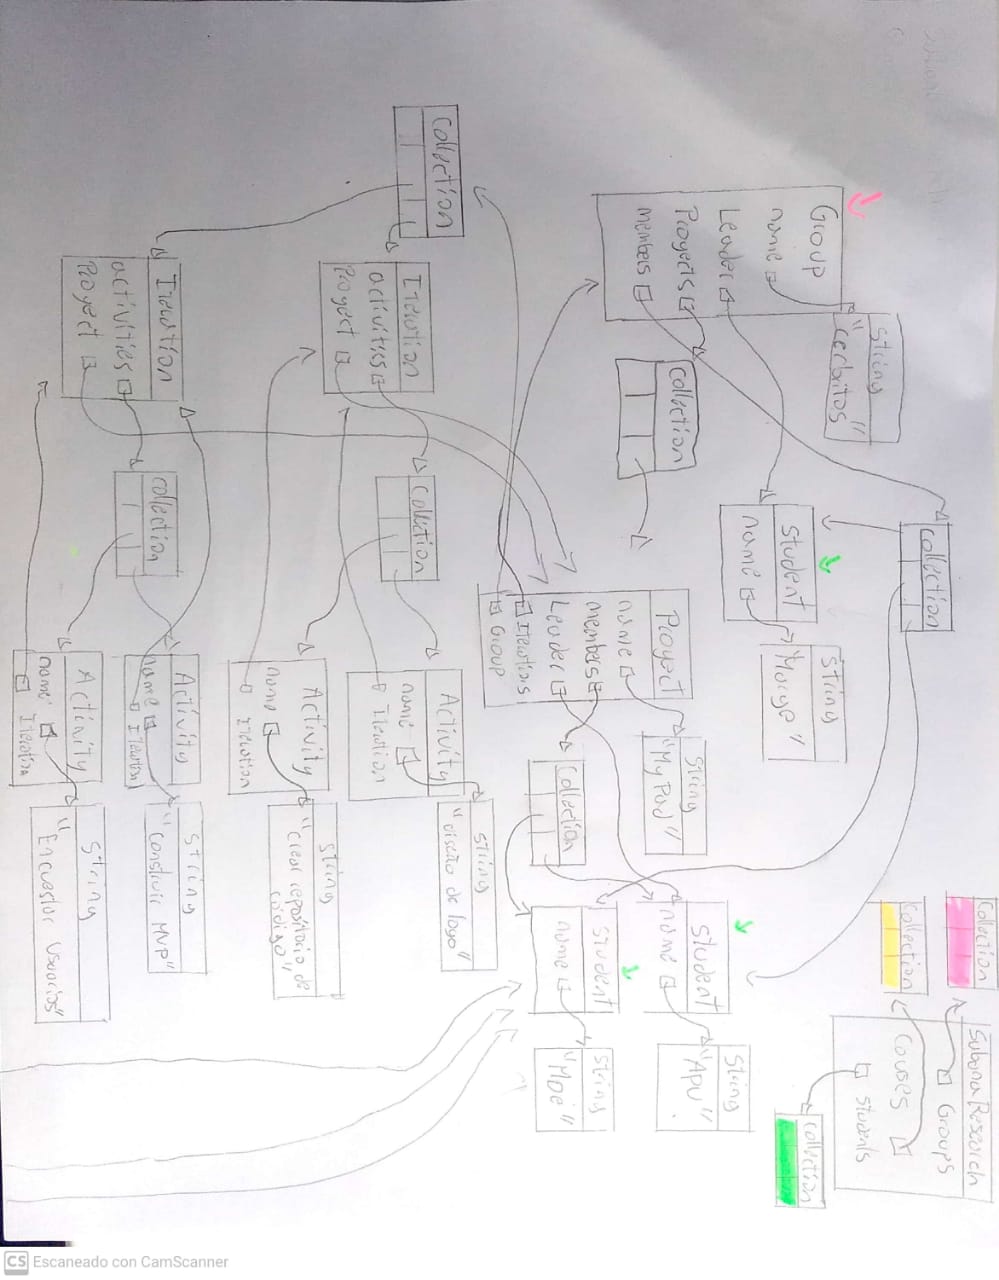 Collection
Subana Research
Groups
Collection
Couses
Students
Collection
Collection
String
"cerbritos"
Group
name
Leader
Proyects
members
Student
name
String
"Marge"
Collection
Proyect
name
members
Leader
Itewtions
Group
String
"My Pod"
Student
name
String
"APU"
Student
name
String
"Moe"
Collection
Collection
Itewtion
activities
Proyect
Collection
Activity
name
Itewtion
String
"diseño de logo"
Activity
name
Itewtion
String
"Crear repositorio de
código"
Itewtion
activities
Proyect
collection
Activity
name
Itewtion
String
"Construir MVP"
Activity
name
Itewtion
String
"Encuestar usuarios"
CS Escaneado con CamScanner